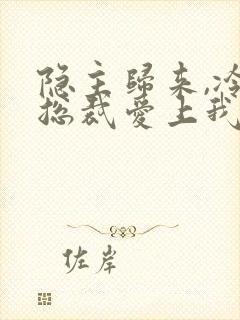 隐主歸来,冷
总裁爱上我
佐岸